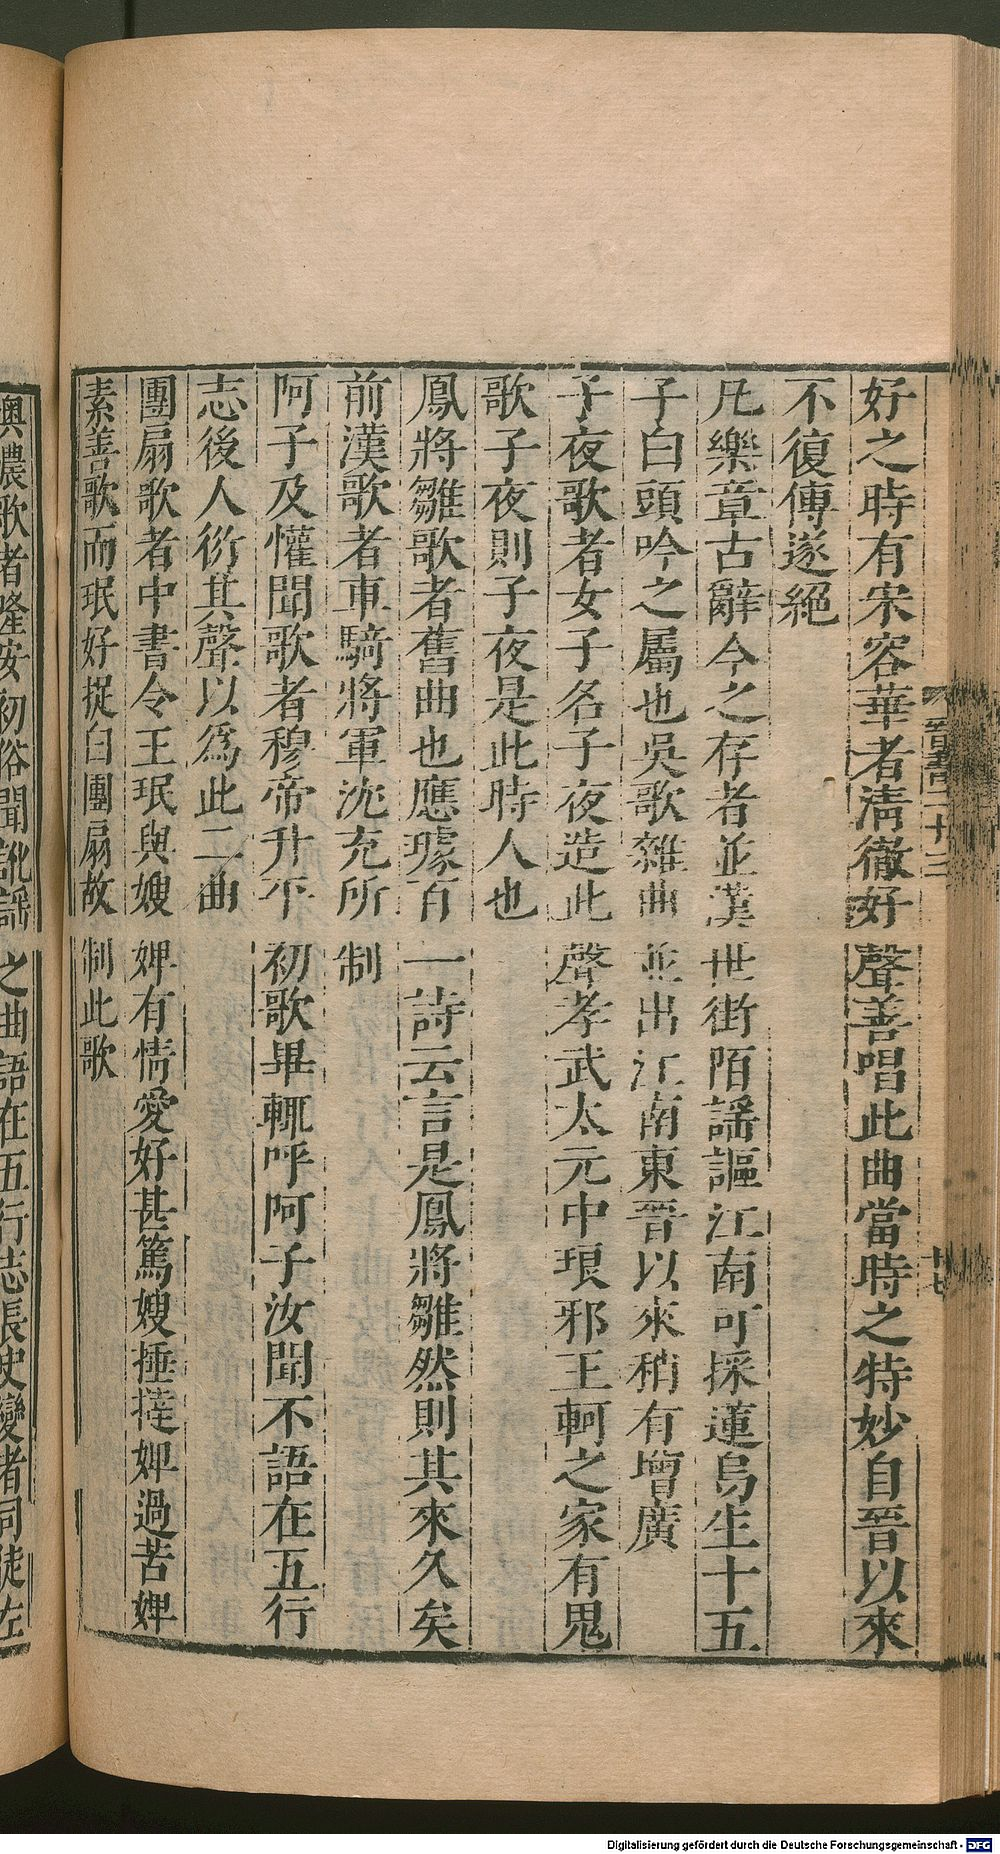 好之時有宋容華者淸徹好聲善唱此曲當時之特妙自晉以來
不復傳遂絕
凡樂章古辭今之存者並漢世街陌謡謳江南可採蓮烏生十五
子白頭吟之屬也吳歌雜曲並出江南東晉以來稍有增廣
子夜歌者女子名子夜造此聲孝武太元中琅邪王軻之家有鬼
歌子夜則子夜是此時人也
鳳將雛歌者舊曲也應璩百一詩云言是鳳將雛然則其來久矣
前漢歌者車騎將軍沈充所制
阿子及懽聞歌者穆帝升平初歌畢輒呼阿子汝聞不語在五行
志後人衍其聲以爲此二曲
團扇歌者中書令王珉與嫂婢有情愛好甚篤嫂捶撻婢過苦婢
素善歌而珉好捉白團扇故制此歌
懊儂歌者隆安初俗聞訛謡之曲語在五行志長史變者司徒左
晉書二十三
十七
Digitalisierung gefördert durch die Deutsche Forschungsgemeinschaft - DFG